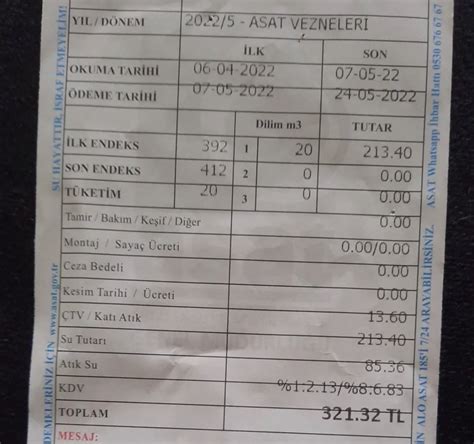 YIL / DÖNEM 2022/5 - ASAT VEZNELERİ
İLK SON
OKUMA TARİHİ 06-04-2022 07-05-22
ÖDEME TARİHİ 07-05-2022 24-05-2022
Dilim m3 TUTAR
İLK ENDEKS 392 1 20 213.40
SON ENDEKS 412 2 0 0.00
TÜKETİM 20 3 0 0.00
Tamir / Bakım / Keşif / Diğer 0.00
Montaj / Sayaç Ücreti 0.00/0.00
Ceza Bedeli 0.00
Kesim Tarihi / Ücreti 0.00
ÇTV / Katı Atık 13.60
Su Tutarı 213.40
Atık Su 85.36
KDV %1:2.13/%8:6.83
TOPLAM 321.32 TL
MESAJ:
SU HAYATTIR, İSRAF ETMEYELİM!
DEMELERİNİZ İÇİN www.asat.gov.tr
ASAT Whatsapp İhbar Hattı 0530 676 67 67
IN ALO ASAT 185'İ 7/24 ARAYABİLİRSİNİZ.